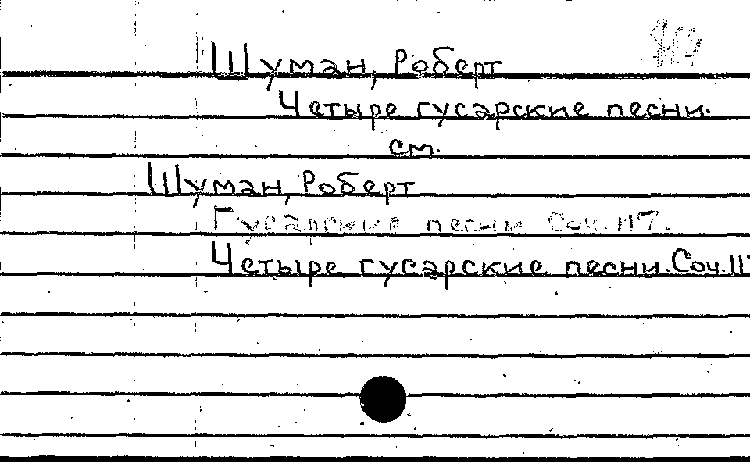 Шуман, Роберт
Четыре гусарские песни.
см.
Шуман, Роберт
Гусарские песни Соч. 117.
Четыре гусарские песни. Соч. 117